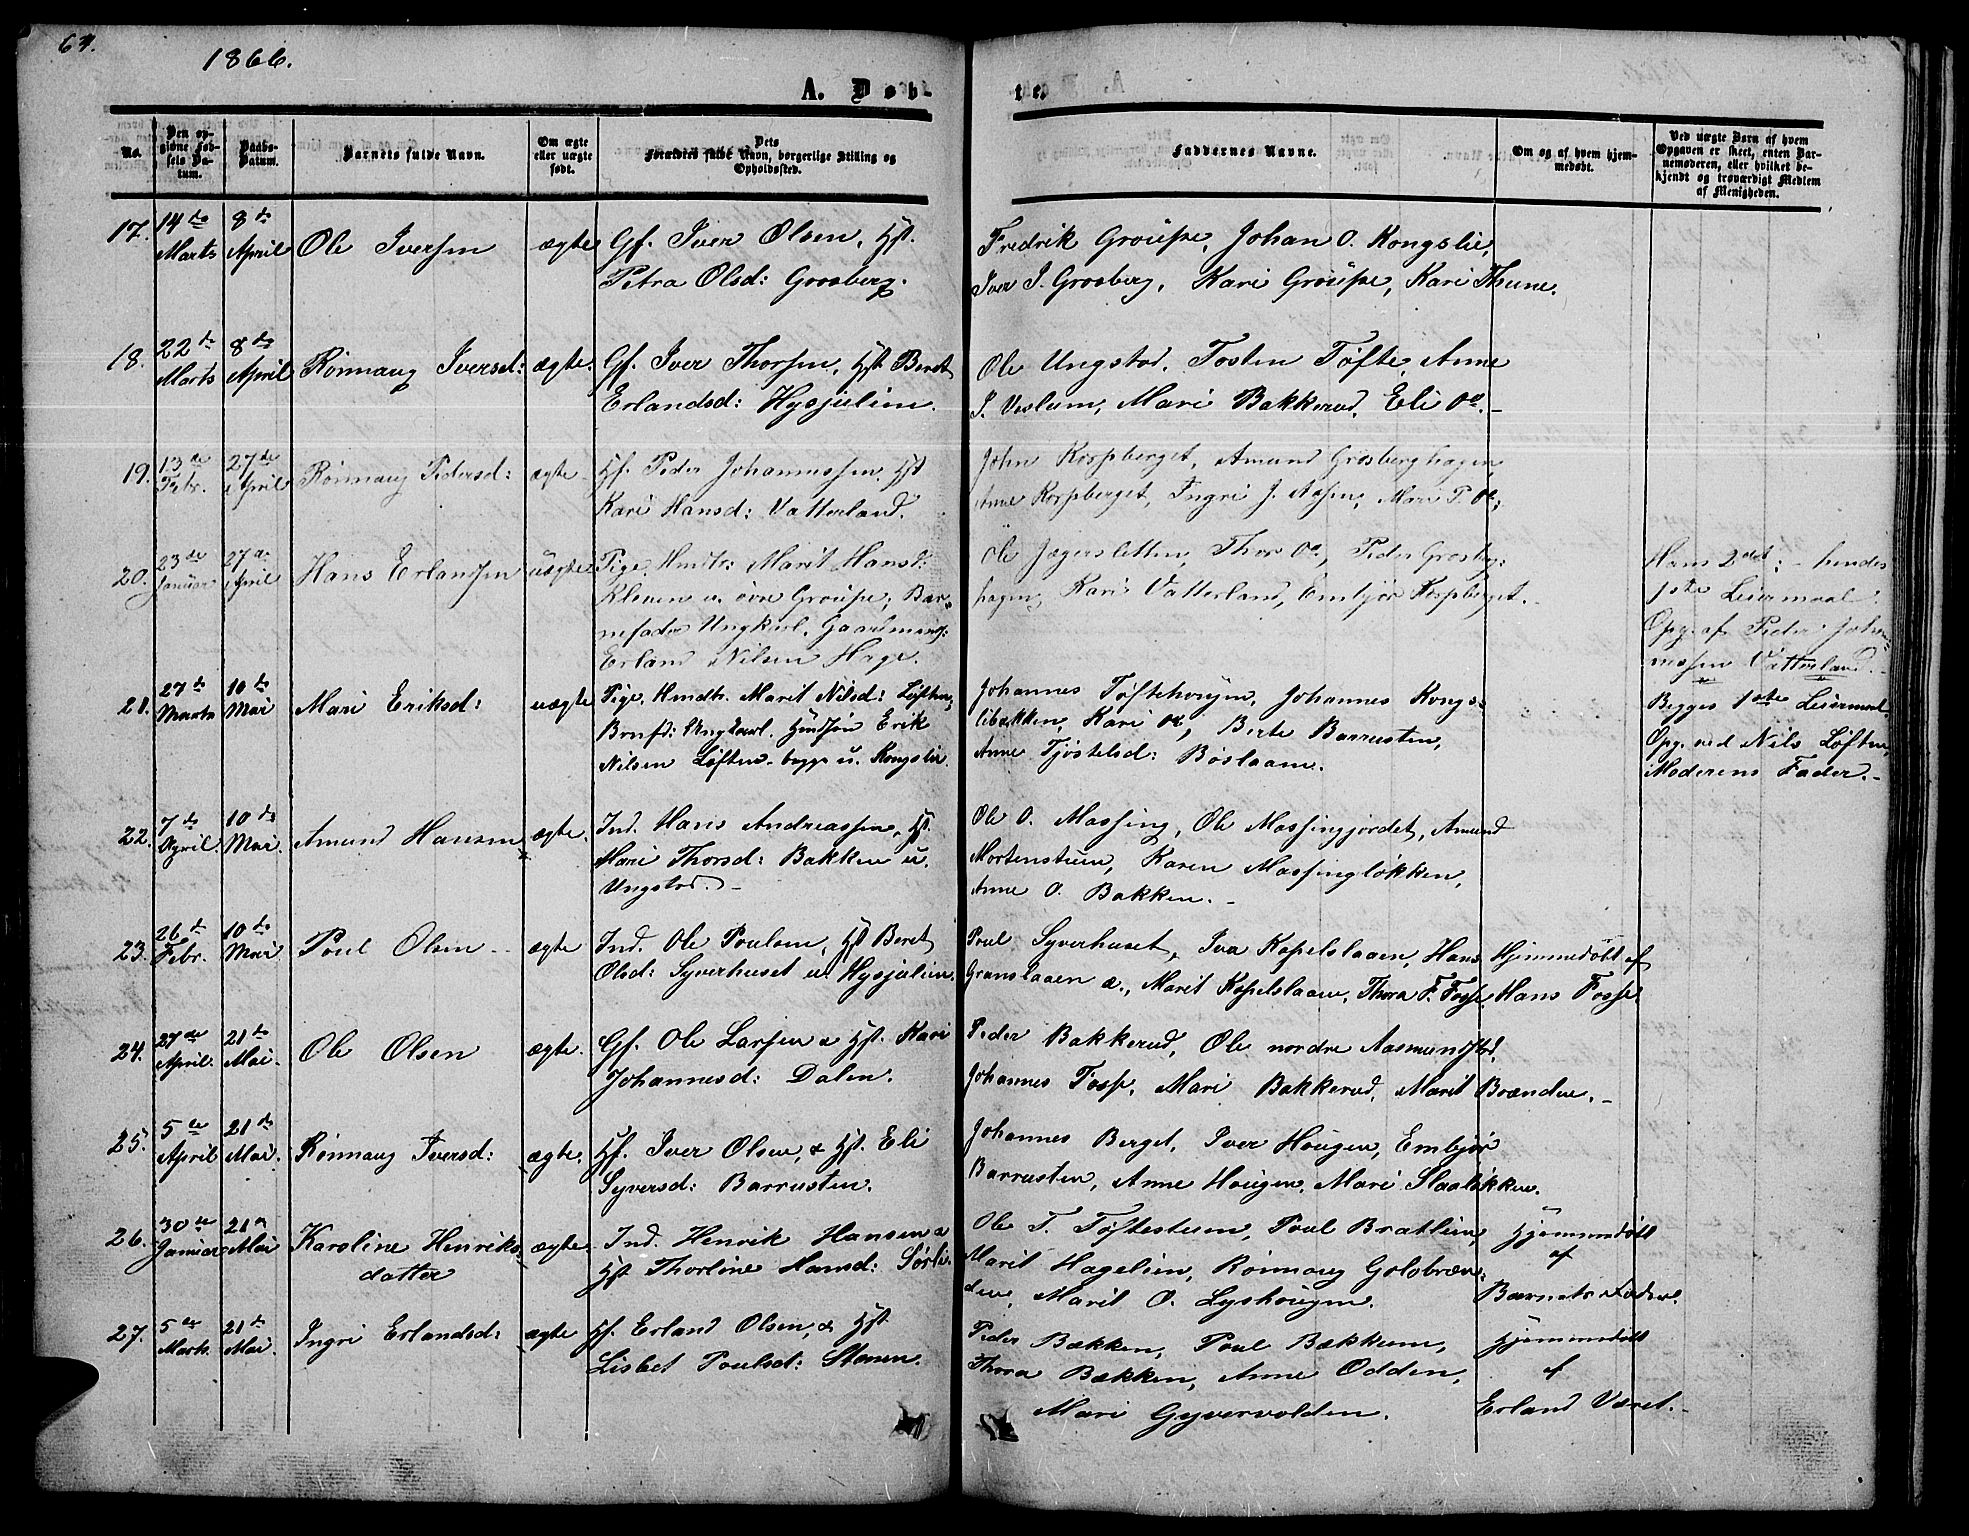 64.
1866.
A. Døb-
te.
No.
Den op-
givne Fød-
sels Da-
tum.
Daabs-
Datum.
Barnets fulde Navn.
Om ægte
eller uægte
født.
Dets
Forældres fulde Navn, borgerlige Stilling og
Opholdssted.
Faddernes Navne.
Om og af hvem hjem-
medøbt.
Ved uægte Børn af hvem
Opgaven er skeet, enten Bar-
nemoderen, eller hvilket be-
kjendt og troværdigt Medlem
af Menigheden.
17. 14de Marts 8de April Ole Iversen ægte Gf. Iver Olsen, Hst.
Petra Olsd: Grosberg.
Fredrik Groupe, Johan O. Kongslie,
Iver I. Grosberg, Kari Groupe, Kari Thune.
18. 22de Marts 8de April Rønnaug Iversd: ægte. Gf. Iver Thorsen, Hst Beret
Erlandsd: Hysjulien.
Ole Ungstad, Tosten Tofte, Anne
I. Veslum, Mari Bakkerud, Eli do.-
19. 13de Febr. 27de April Rønnaug Pedersd: ægte Hf. Peder Johannessen, Hst
Kari Hansd: Vatterland.
John Korpberget, Amund Grosberghagen
Anne Korpberget, Ingri J. Mari P. do;
20. 23de Januar 27de April Hans Erlandsen uægte Pige, Marit Hansd:
Kleven u. øvre Groupe, Bar-
nefader Ungkarl, Gaardmand
Erland Nilsen Hage.
Ole Jægersletten, Thor do, Peder Grosberg-
hagen, Kari Vatterland, Embjør Korpberget.
Hans 2det; - hendes
1ste Leiermaal.
Opg. af Peder Johan-
nessen Vatterland.
21. 27de Marts 10de Mai Mari Eriksd: uægte Pige, Marit Nilsd: Løften,
Barnfd: Ungkarl. Erik
Nilsen Løften - begge u. Kongslie
Johannes Johannes Kongs-
libakken, Kari do, Birte Barrusten,
Anne Tjøstelsd: Böslaam.
Begges 1ste Leiermaal.
Opg. ved Nils Løften,
Moderens Fader.-
22. 7de April. 10de Mai. Amund Hansen ægte. Ind. Hans Andreassen, Hst.
Mari Thorsd: Bakken u.
Ungstad.-
Ole O. Massing, Ole Massingjordet, Amund
Mortenstuen, Karen Massingløkken,
Anne O. Bakken.-
23. 26de Febr. 10de Mai Poul Olsen - ægte Ind. Ole Poulsen, Hst Beret
Olsd: Syverhuset u. Hysjulien.
Poul Syverhuset, Iver Kapelslaaen, Hans
Granslaaen æ., Marit Kapelslaaen, Thora F. Fosse
Hjemmedøbt af
Hans Fosse
24. 27de April. 21de Mai. Ole Olsen ægte. Gf. Ole Larsen & Hst. Kari
Johannesd: Dalen.
Peder Bakkerud, Ole nordre Aasmundstad,
Johannes Fosse, Mari Bakkerud, Marit Brænden.-
25. 5te April 21de Mai. Rønnaug Iversd: ægte. Hf. Iver Olsen, & Hst. Eli
Syversd: Barrusten.
Johannes Berget, Iver Hougen, Embjør
Barrusten, Anne Hougen, Mari Slaaløkken.
26. 30te Januar 21de Mai Karoline Henriks-
datter ægte Ind. Henrik Hansen &
Hst Thorline Hansd: Sørli.
Ole T. Toftestuen, Poul Bratlien,
Marit Hagelien, Rønnaug Golobræn-
den, Marit O. Lyshougen.
Hjemmedøbt
af
Barnets Fader.
27. 5te Marts. 21de Mai. Ingri Erlandsd: ægte Hf. Erland Olsen, & Hst
Lisbet Poulsd: Stenen.
Peder Bækken, Poul Bækkum,
Thora Bækken, Anne Odden,
Mari Gyvervolden.
Hjemmedøbt
af
Erland Været.